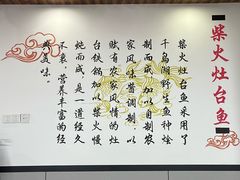 柴火灶台鱼
柴火灶台鱼采用了
千岛湖野生鱼种烩
制而成加以自制农
家风味酱调制，以
赋有农家风情的灶
台铁锅加以柴火慢
炖而成，是一道经久
不衰，营养丰富的经
典美味。